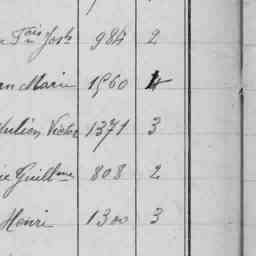 n Fois Josh 984 2
an Marie 1560 4
Julien Victor 1371 3
ie Guillme 808 2
Henri 1300 3